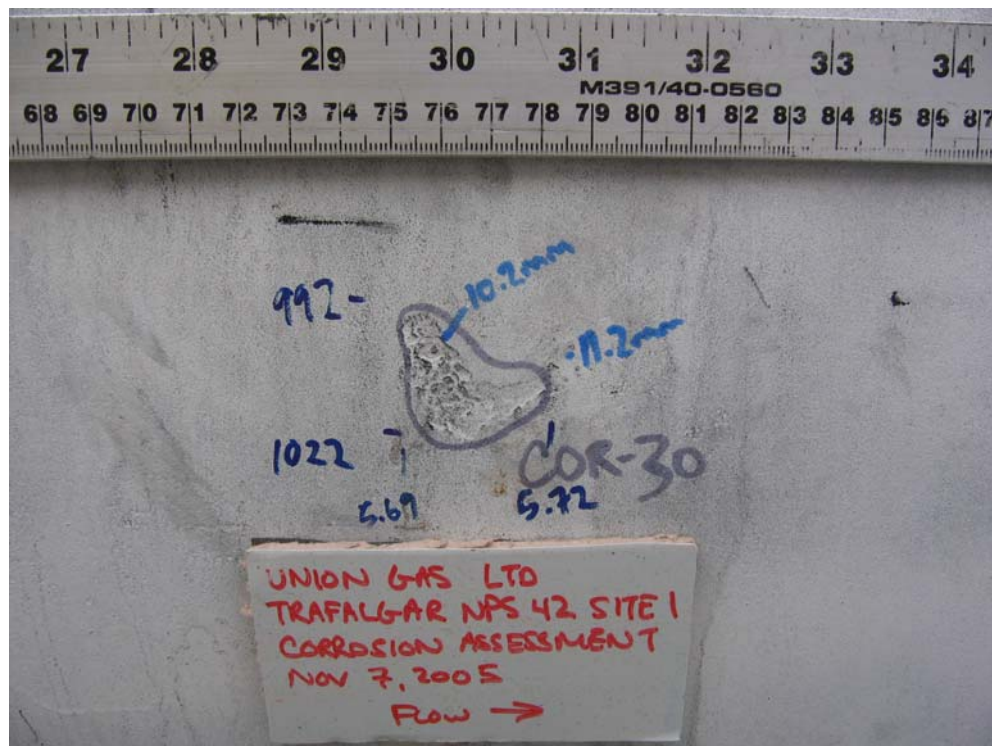 27 28 29 30 31 32 33 34
M391/40-0560
68 69 70 71 72 73 74 75 76 77 78 79 80 81 82 83 84 85 86 87
992-
10.2mm
11.2mm
1022
COR-30
5.69
5.72
UNION GAS LTD
TRAFALGAR NPS 42 SITE 1
CORROSION ASSESSMENT
NOV 7, 2005
FLOW →